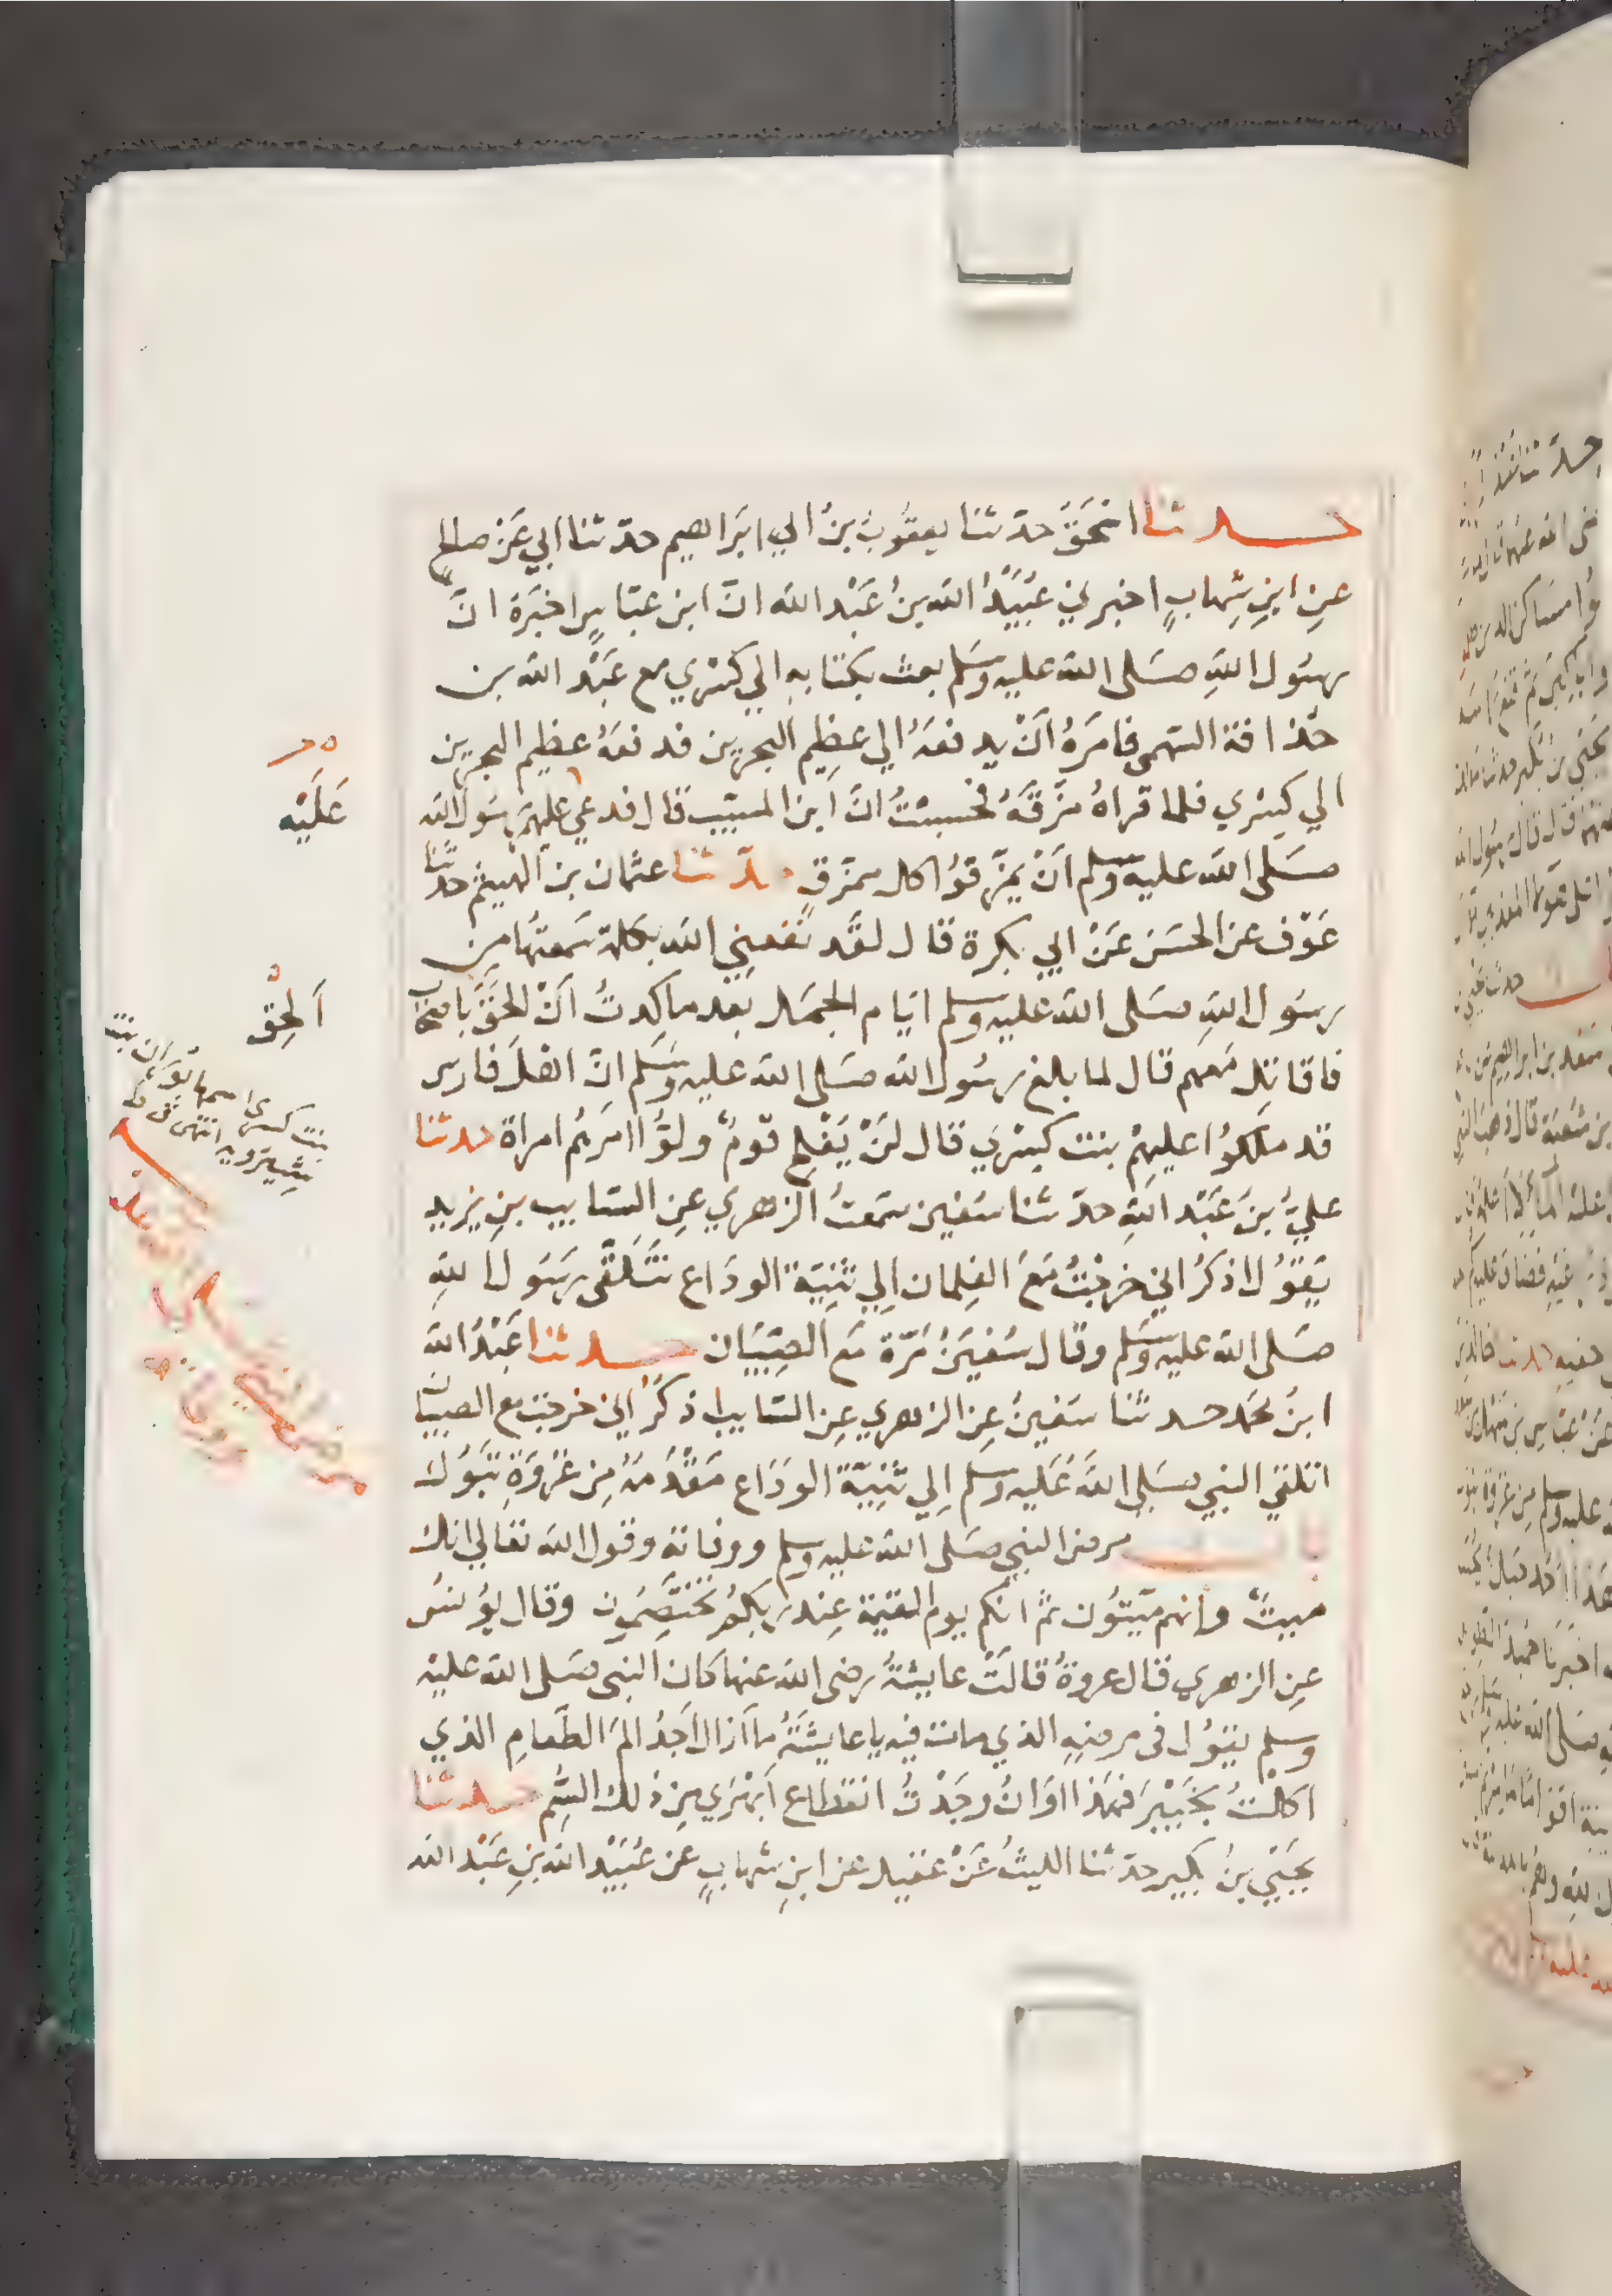 حدثنا اسحق حدثنا يعقوب بن ابي ابراهيم حدثنا ابي عن صالح
عن ابن شهاب اخبرني عبيد الله بن عبد الله ان ابن عباس اخبره ان
رسول الله صلى الله عليه وسلم بعث بكتابه الي كسري مع عبد الله بن
حذافة السهمي فامره ان يدفعه الي عظيم البحرين فدفعه عظيم البحرين
الي كسري فلما قراه مزقه فحسبت ان ابن المسيب قال فدعي عليهم رسول الله
صلى الله عليه وسلم ان يمزقوا كل ممزق حدثنا عثمان بن الهيثم حدثنا
عوف عن الحسن عن ابي بكرة قال لقد نفعني الله بكلمة سمعتها من
رسول الله صلى الله عليه وسلم ايام الجمل بعد ما كدت ان الحق باصحاب
فاقاتل معهم قال لما بلغ رسول الله صلى الله عليه وسلم ان اهل فارس
قد ملكوا عليهم بنت كسري قال لن يفلح قوم ولوا امرهم امراة حدثنا
علي بن عبد الله حدثنا سفين سمعت الزهري عن السايب بن يزيد
يقول اذكر اني خرجت مع الغلمان الي ثنية الوداع نتلقى رسول الله
صلى الله عليه وسلم وقال سفين مرة مع الصبيان حدثنا عبد الله
ابن محمد حدثنا سفين عن الزهري عن السايب اذكر اني خرجت مع الصبيان
اتلقي النبي صلى الله عليه وسلم الي ثنية الوداع مقدمه من غزوة تبوك
باب مرض النبي صلى الله عليه وسلم ووفاته وقول الله تعالي انك
ميت وانهم ميتون ثم انكم يوم القيمة عند ربكم تختصمون وقال يونس
عن الزهري قال عروة قالت عايشة رضى الله عنها كان النبي صلى الله عليه
وسلم يقول في مرضه الذي مات فيه يا عايشة ما ازال اجد الم الطعام الذي
اكلت بخيبر فهذا اوان وجدت انقطاع ابهري من ذلك السم حدثنا
يحيي بن بكير حدثنا الليث عن عقيل عن ابن شهاب عن عبيد الله بن عبد الله
عليه
الحق
بنت كسرى اسمها بوران بنت
شيرويه انتهى